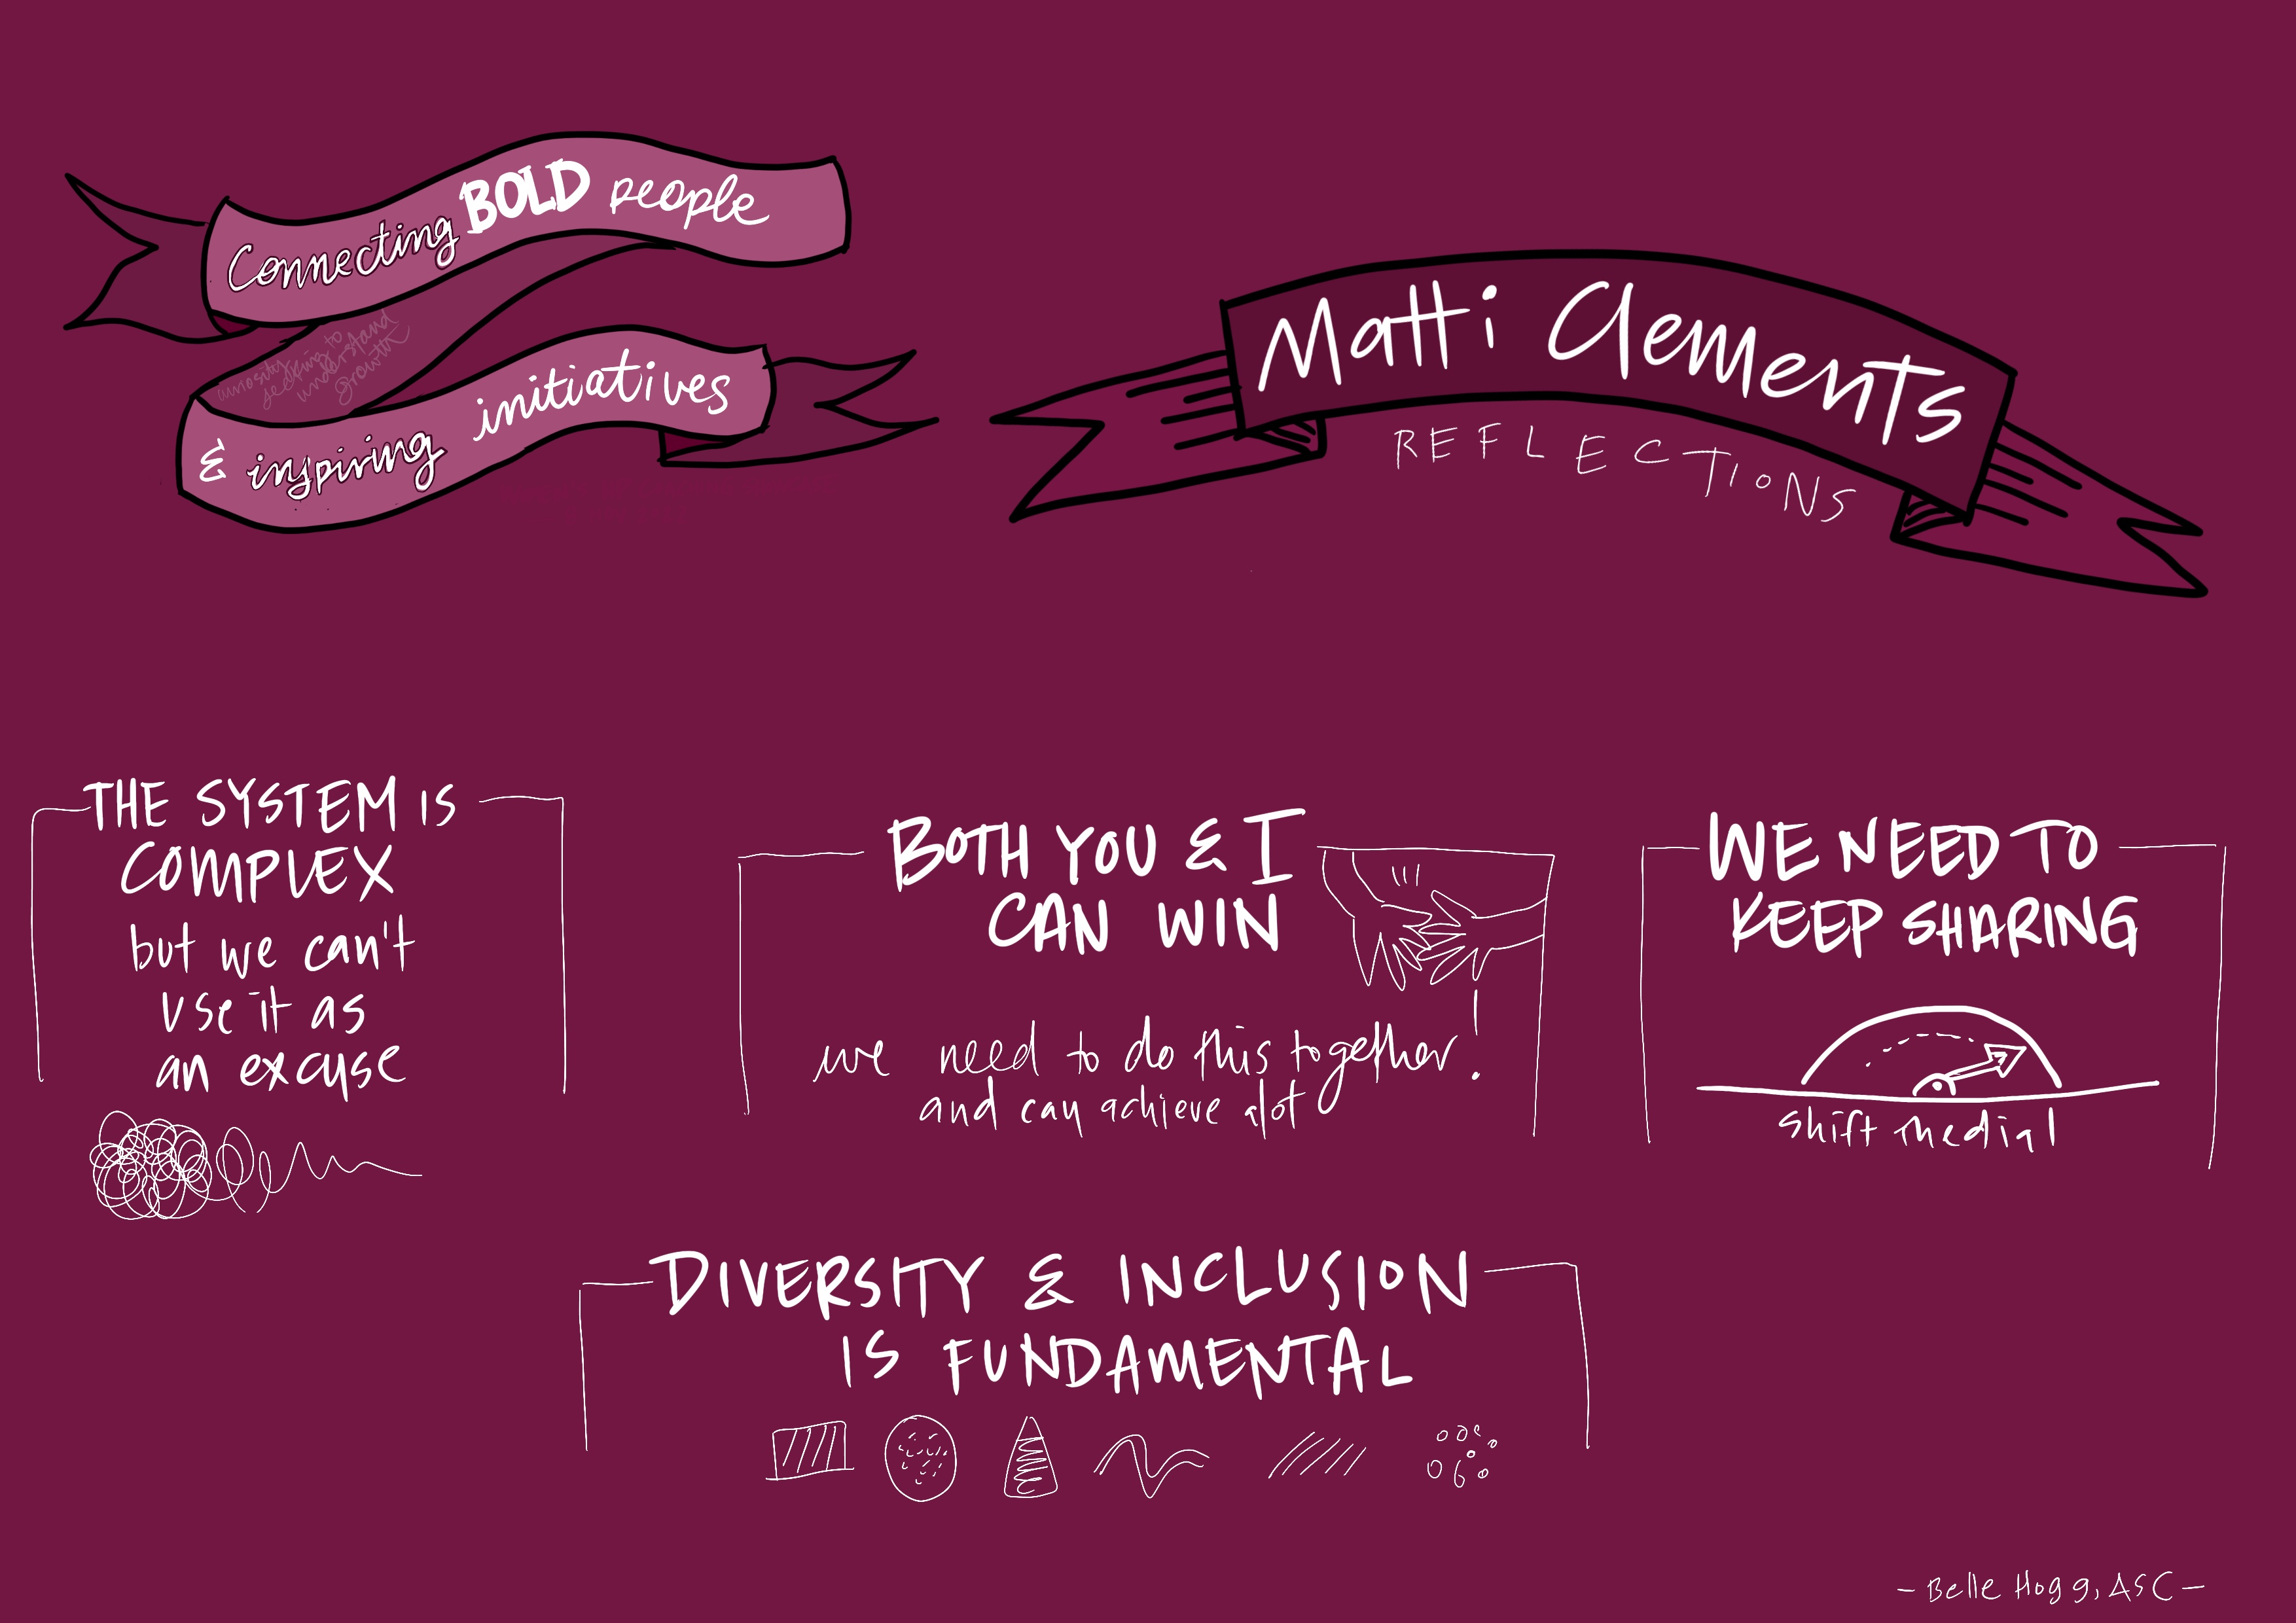 Connecting BOLD people
curiosity
seeking to
understand
growth
& inspiring initiatives
Matti Clements
REFLECTIONS
THE SYSTEM IS
COMPLEX
but we can't
use it as
an excuse
BOTH YOU & I
CAN WIN
we need to do this together!
and can achieve alot
WE NEED TO
KEEP SHARING
shift the dial
DIVERSITY & INCLUSION
IS FUNDAMENTAL
- Belle Hogg, ASC -